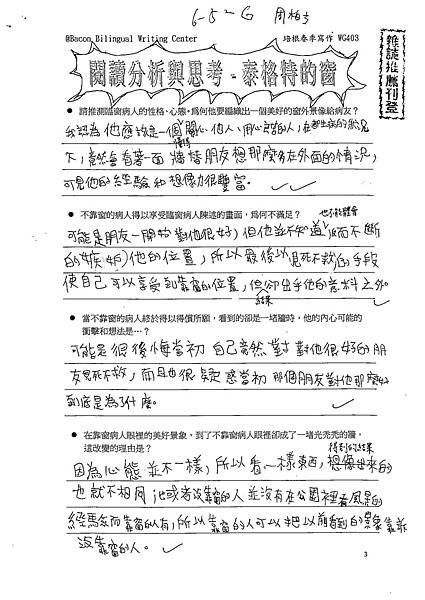 6-5-2-G 周柏
@Bacon Bilingual Writing Center
培根春季寫作 WG403
雜誌推薦刊登
閱讀分析與思考·泰格特的窗
● 請推測臨窗病人的性格、心態。為何他要編織出一個美好的窗外景像給病友?
我認為他應該是一個關心他人、用心良的人,在都生病的狀況
下,竟然會看著一面牆替朋友想那麼多在外面的情況,
可見他的經驗和想像力很豐富。
● 不靠窗的病人得以享受臨窗病人陳述的畫面,為何不滿足?
可能是朋友一開始對他很好,但他並不知道,也不能體會,反而不斷
的嫉妒他的位置,所以最後以見死不救的手段
使自己可以享受到靠窗的位置,但結果卻出乎他的意料之外。
● 當不靠窗的病人終於得以得償所願,看到的卻是一堵牆時,他的內心可能的
衝擊和想法是…?
可能是很後悔當初自己竟然對對他很好的朋
友見死不救,而且也很疑惑當初那個朋友對他那麼好
到底是為了什麼。
● 在靠窗病人眼裡的美好景象,到了不靠窗病人眼裡卻成了一堵光禿禿的牆,
這改變的理由是?
因為心態並不一樣,所以看一樣東西,得到的結果想像出來的
也就不相同 也或者沒靠窗的人並沒有在公園裡看風景的
經驗而靠窗的人有,所以靠窗的人可以把以前看到的景象告訴
沒靠窗的人。
3